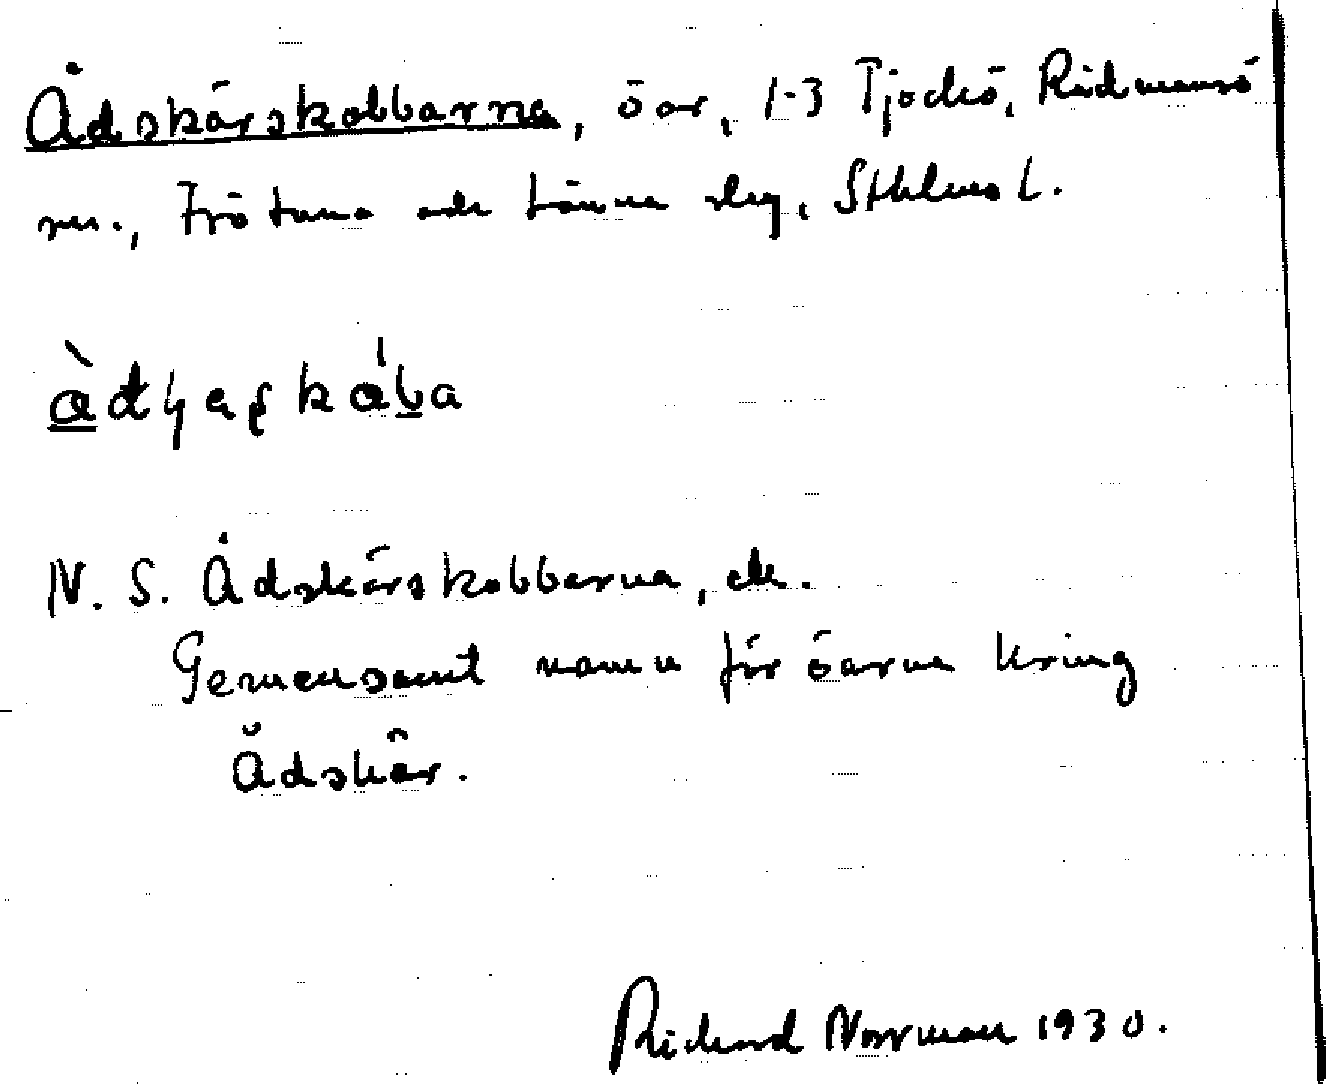 Ådskärskobbarna, öar, 1-3 Tjockö, Rådmansö
sn., Frötuna och Länna slg, Sthlms l.
N. S. Ådskärskobbarna, ek.
Gemensamt namn för öarna kring
Ådskär.
Richard Norrman 1930.